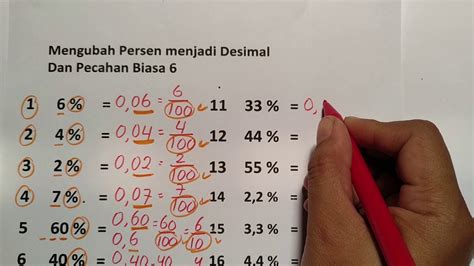 Mengubah Persen menjadi Desimal
Dan Pecahan Biasa 6
1 6 % = 0,06 = 6/100 11 33 % = 0,
2 4 % = 0,04 = 4/100 12 44 % =
3 2 % = 0,02 = 2/100 13 55 % =
4 7 % = 0,07 = 7/100 14 2,2 % =
5 60 % = 0,60 = 60/100 = 6/10 15 3,3 % =
0,6
6 40 % = 0,40 16 4,4 %